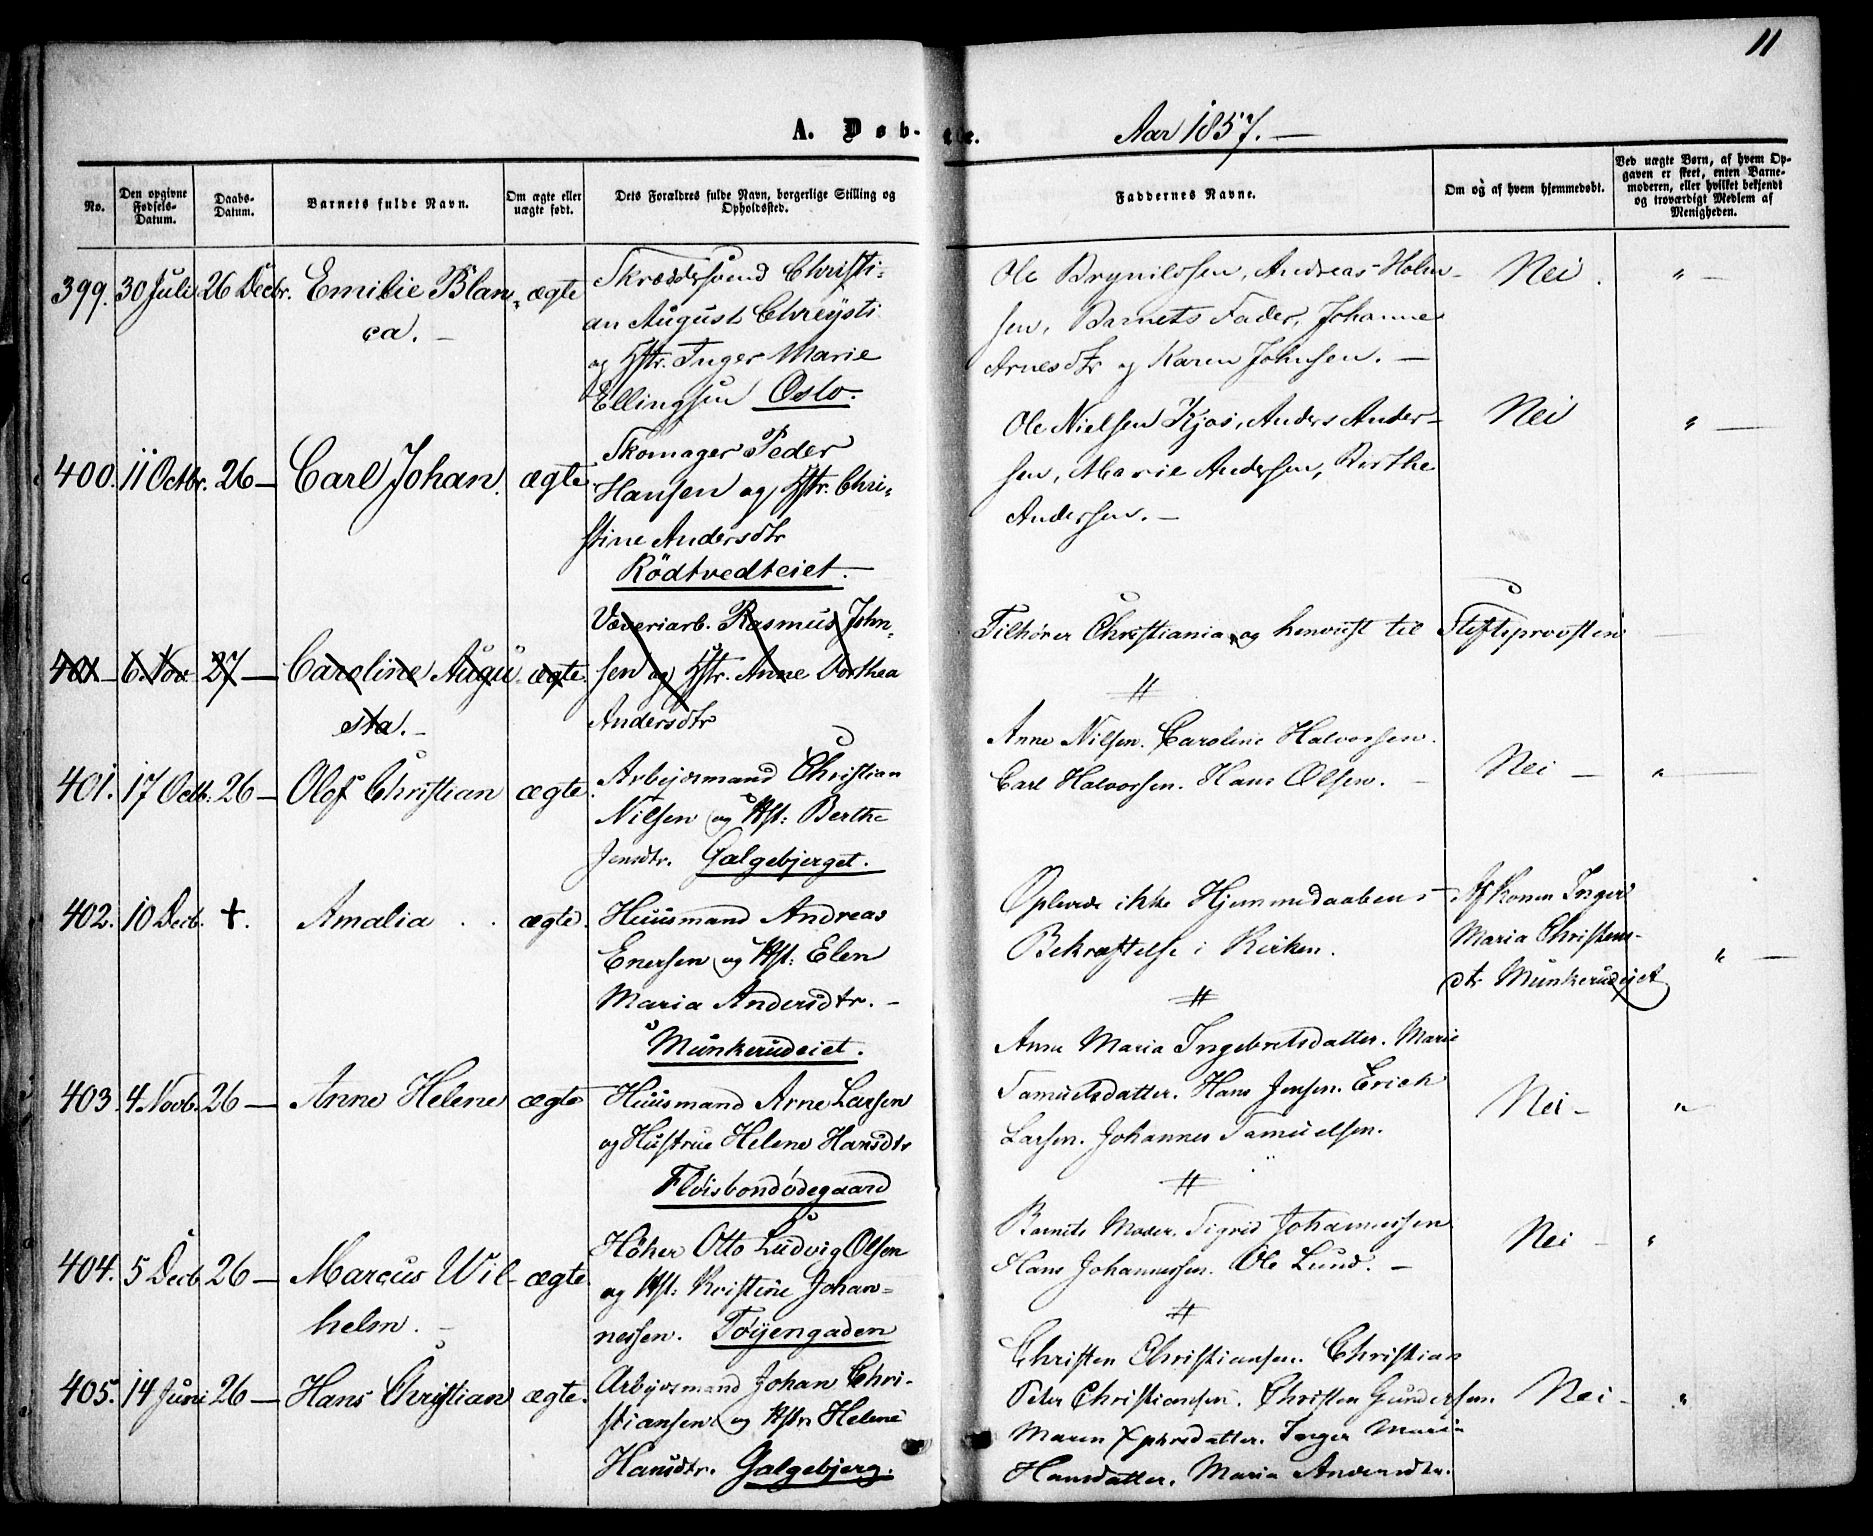 11
A. Døb-
te.
Aar 1857. —
No.
Den opgivne
Fødsels-
Datum.
Daabs-
Datum.
Barnets fulde Navn.
Om ægte eller
uægte født.
Dets Forældres fulde Navn, borgerlige Stilling og
Opholdssted.
Faddernes Navne.
Om og af hvem hjemmedøbt.
Ved uægte Børn, af hvem Op-
gaven er skeet, enten Barne-
moderen, eller hvilket bekjendt
og troværdigt Medlem af
Menigheden.
399. 30 Juli 26 Decbr. Emilie Blan-
ca. —
ægte
Skræddersvend Christi-
an August Chreysti
og Hstr. Inger Marie
Ellingsen Oslo.
Ole Brynildsen, Andreas Holm-
sen, Barnets Fader, Johanne
Arnesdtr og Karen Johnsen. —
Nei.
" —
400. 11 Octbr. 26 — Carl Johan. ægte
Skomager Peder
Hansen og Hstr. Chri-
stine Andersdtr
Rödtvedteiet. —
Ole Nielsen Kjos, Anders Ander-
sen, Marie Andersen, Berthe
Andersen. —
Nei
" —
401 — 6. Nov 27 — Caroline Augu-
sta. —
ægte.
Væveriarb. Rasmus John-
sen og Hstr. Anne Dorthea
Andersdtr
Tilhører Christiania og henviist til Stiftsprovsten
#
401. 17 Octb: 26 — Olof Christian ægte.
Arbejdsmand Christian
Nilsen og Hst: Berthe
Jensdtr. Galgebjerget.
Anne Nilsen. Caroline Halvorsen.
Carl Halvorsen. Hans Olsen. —
Nei —
" —
402. 10 Decb. +. Amalia . . ægte.
Huusmand Andreas
Enersen og Hst: Elen
Maria Andersdtr. —
Munkerudeiet.
Oplevde ikke Hjemmedaabens
Bekræftelse i Kirken.
#
Af Konen Inger
Maria Christens-
dtr Munkerudejet
" —
403. 4. Novb. 26 — Anne Helene ægte
Huusmand Arne Larsen
og Hustrue Helene Hansdtr
Fløisbondødegaard
Anne Maria Ingebretsdatter. Marie
Samuelsdatter. Hans Jensen. Erich
Larsen. Johannes Samuelsen.
#
Nei —
"
404. 5 Decb. 26 — Marcus Wil-
helm. —
ægte.
Höker Otto Ludvig Olsen
og Hst: Kristine Johan-
nessen. Tøyengaden
Barnets Moder. Sigrid Johannessen
Hans Johannessen. Ole Lund. —
#
Nei —
"
405. 14 Juni 26 — Hans Christian ægte.
Arbejdsmand Johan Chri-
stiansen og Hstr. Helene
Hansdtr. Galgebjerg.
Christen Christiansen. Christian
Peter Christiansen. Christen Gundersen.
Maren Xphersdatter. Inger Maria
Hansdatter. Maria Andersdtr.
Nei —
"